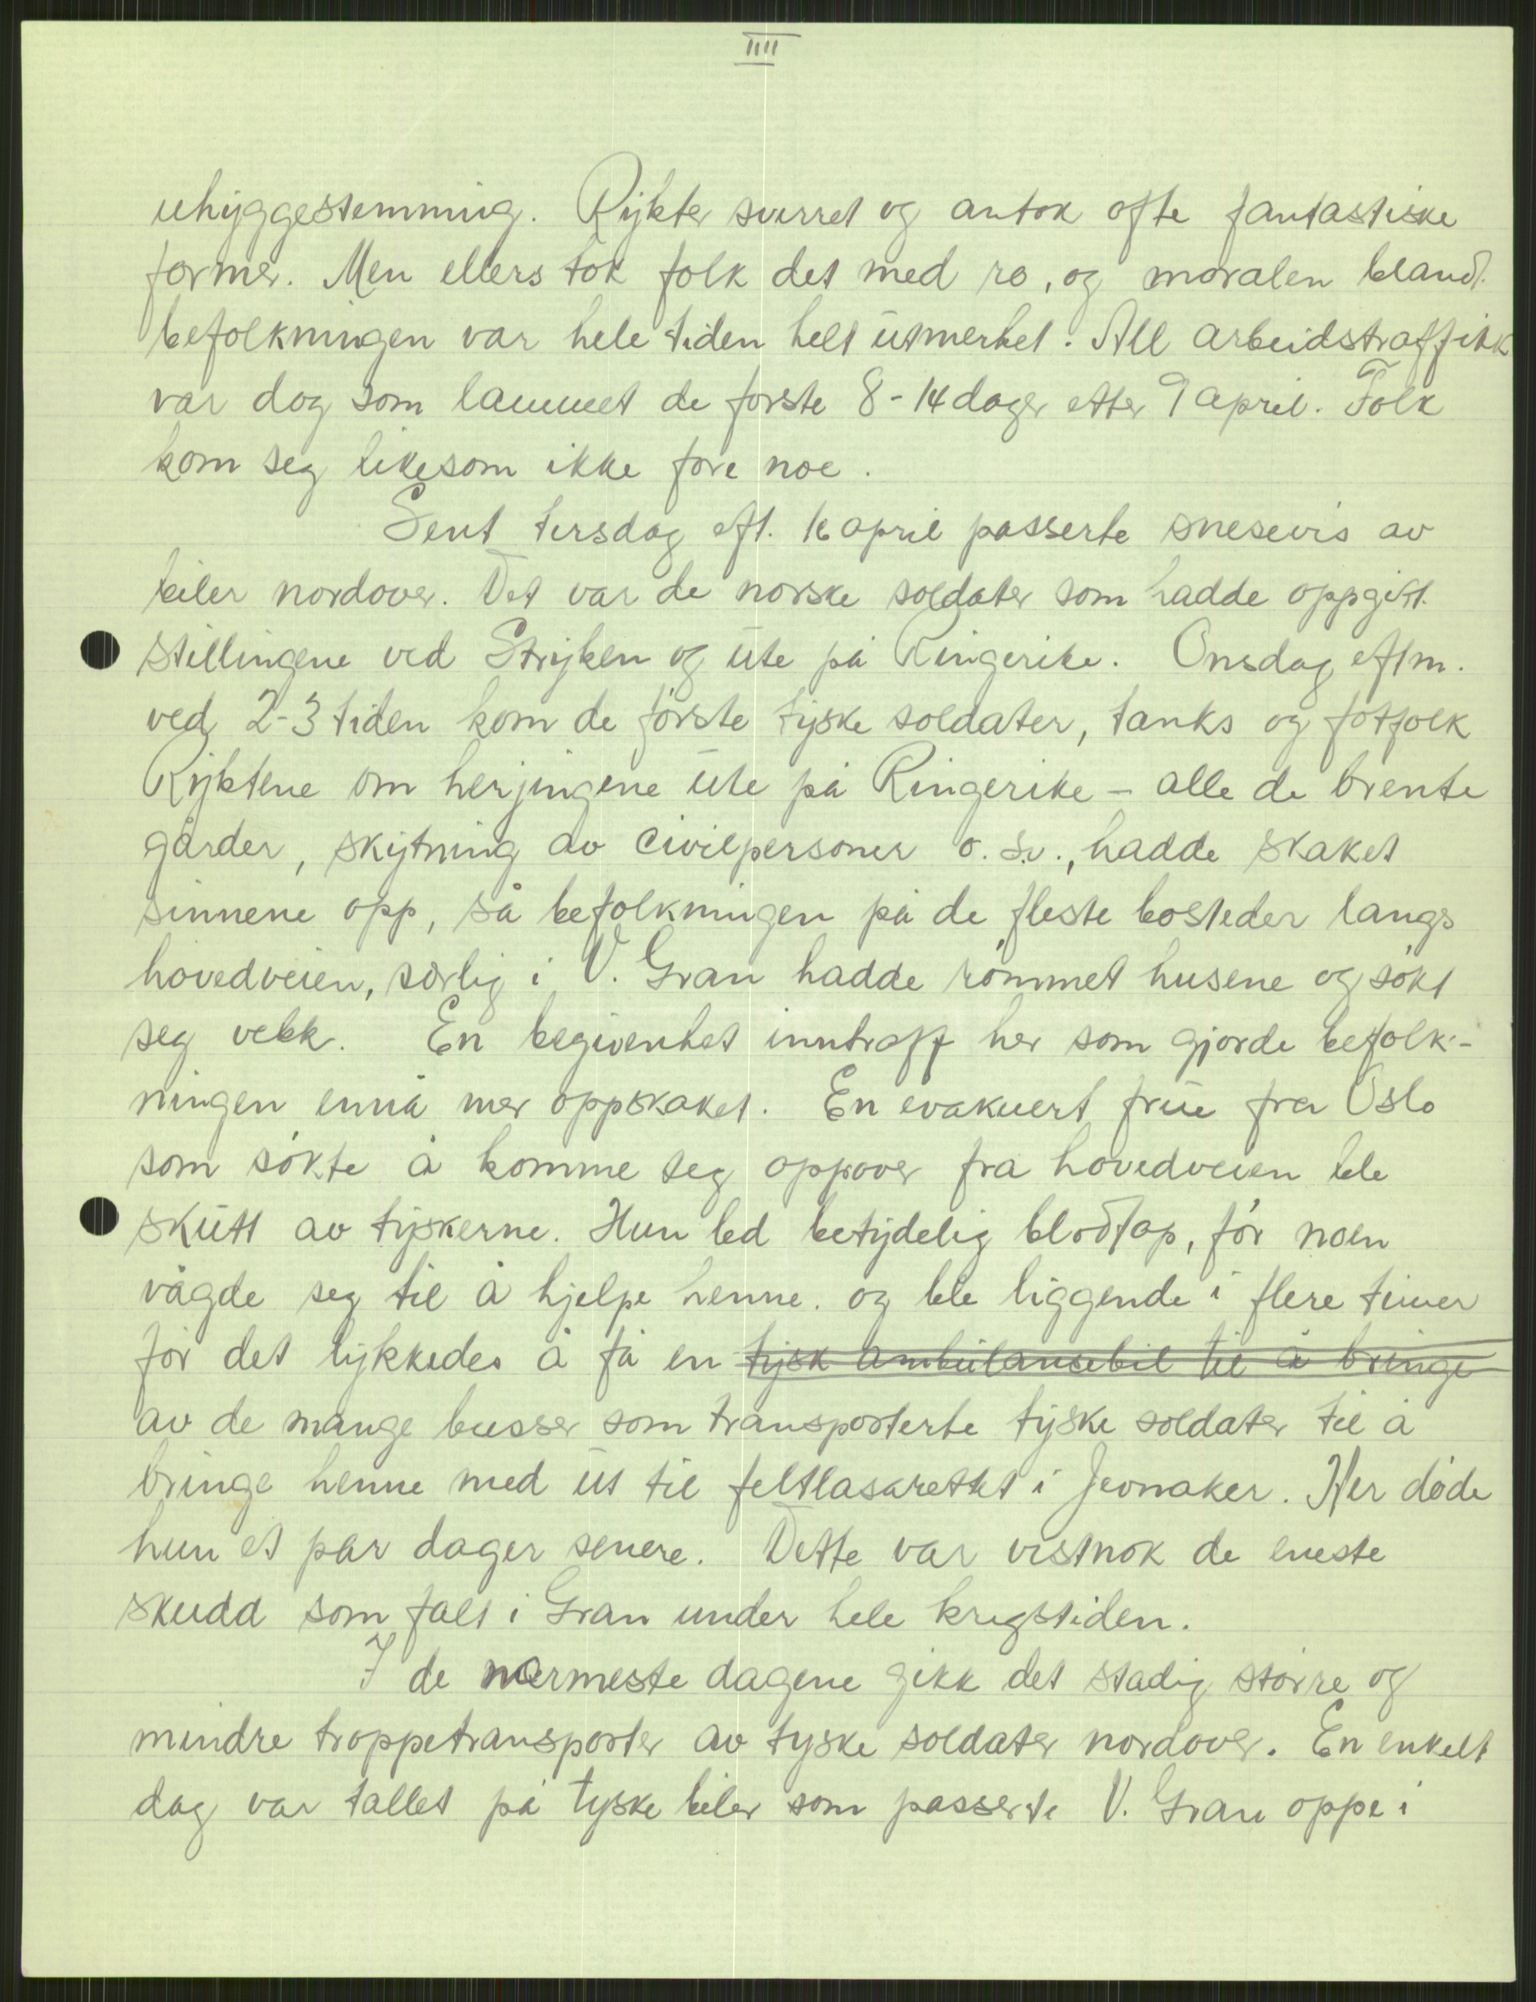 IIII
uhyggestemming. Rykter svirret og antok ofte fantastiske
former. Men ellers tok folk det med ro, og moralen blandt
befolkningen var hele tiden helt utmerket. All arbeidstraffikk
var dog som lammet de første 8-14 dager etter 9 april. Folk
kom seg likesom ikke fore noe.
Sent tirsdag eft. 16 april passerte snesevis av
biler nordover. Det var de norske soldater som hadde oppgitt
stillingene ved Stryken og ute på Ringerike. Onsdag eftm.
ved 2-3 tiden kom de første tyske soldater, tanks og fotfolk
Ryktene om herjingene ute på Ringerike - alle de brente
gårder, skytning av civilpersoner o.s.v., hadde skaket
sinnene opp, så befolkningen på de fleste bosteder langs
hovedveien, særlig i V. Gran hadde rømmet husene og søkt
seg vekk. En begivenhet inntraff her som gjorde befolk-
ningen ennå mer oppskaket. En evakuert frue fra Oslo
som søkte å komme seg oppover fra hovedveien ble
skutt av tyskerne. Hun led betydelig blodtap, før noen
vågde seg til å hjelpe henne. og ble liggende i flere timer
før det lykkedes å få en tysk ambulansebil til å bringe
av de mange busser som transporterte tyske soldater til å
bringe henne med ut til feltlasarettet i Jevnaker. Her døde
hun et par dager senere. Dette var vistnok de eneste
skudd som falt i Gran under hele krigstiden.
I de nærmeste dagene gikk det stadig større og
mindre troppetransporter av tyske soldater nordover. En enkelt
dag var tallet på tyske biler som passerte V. Gran oppe i